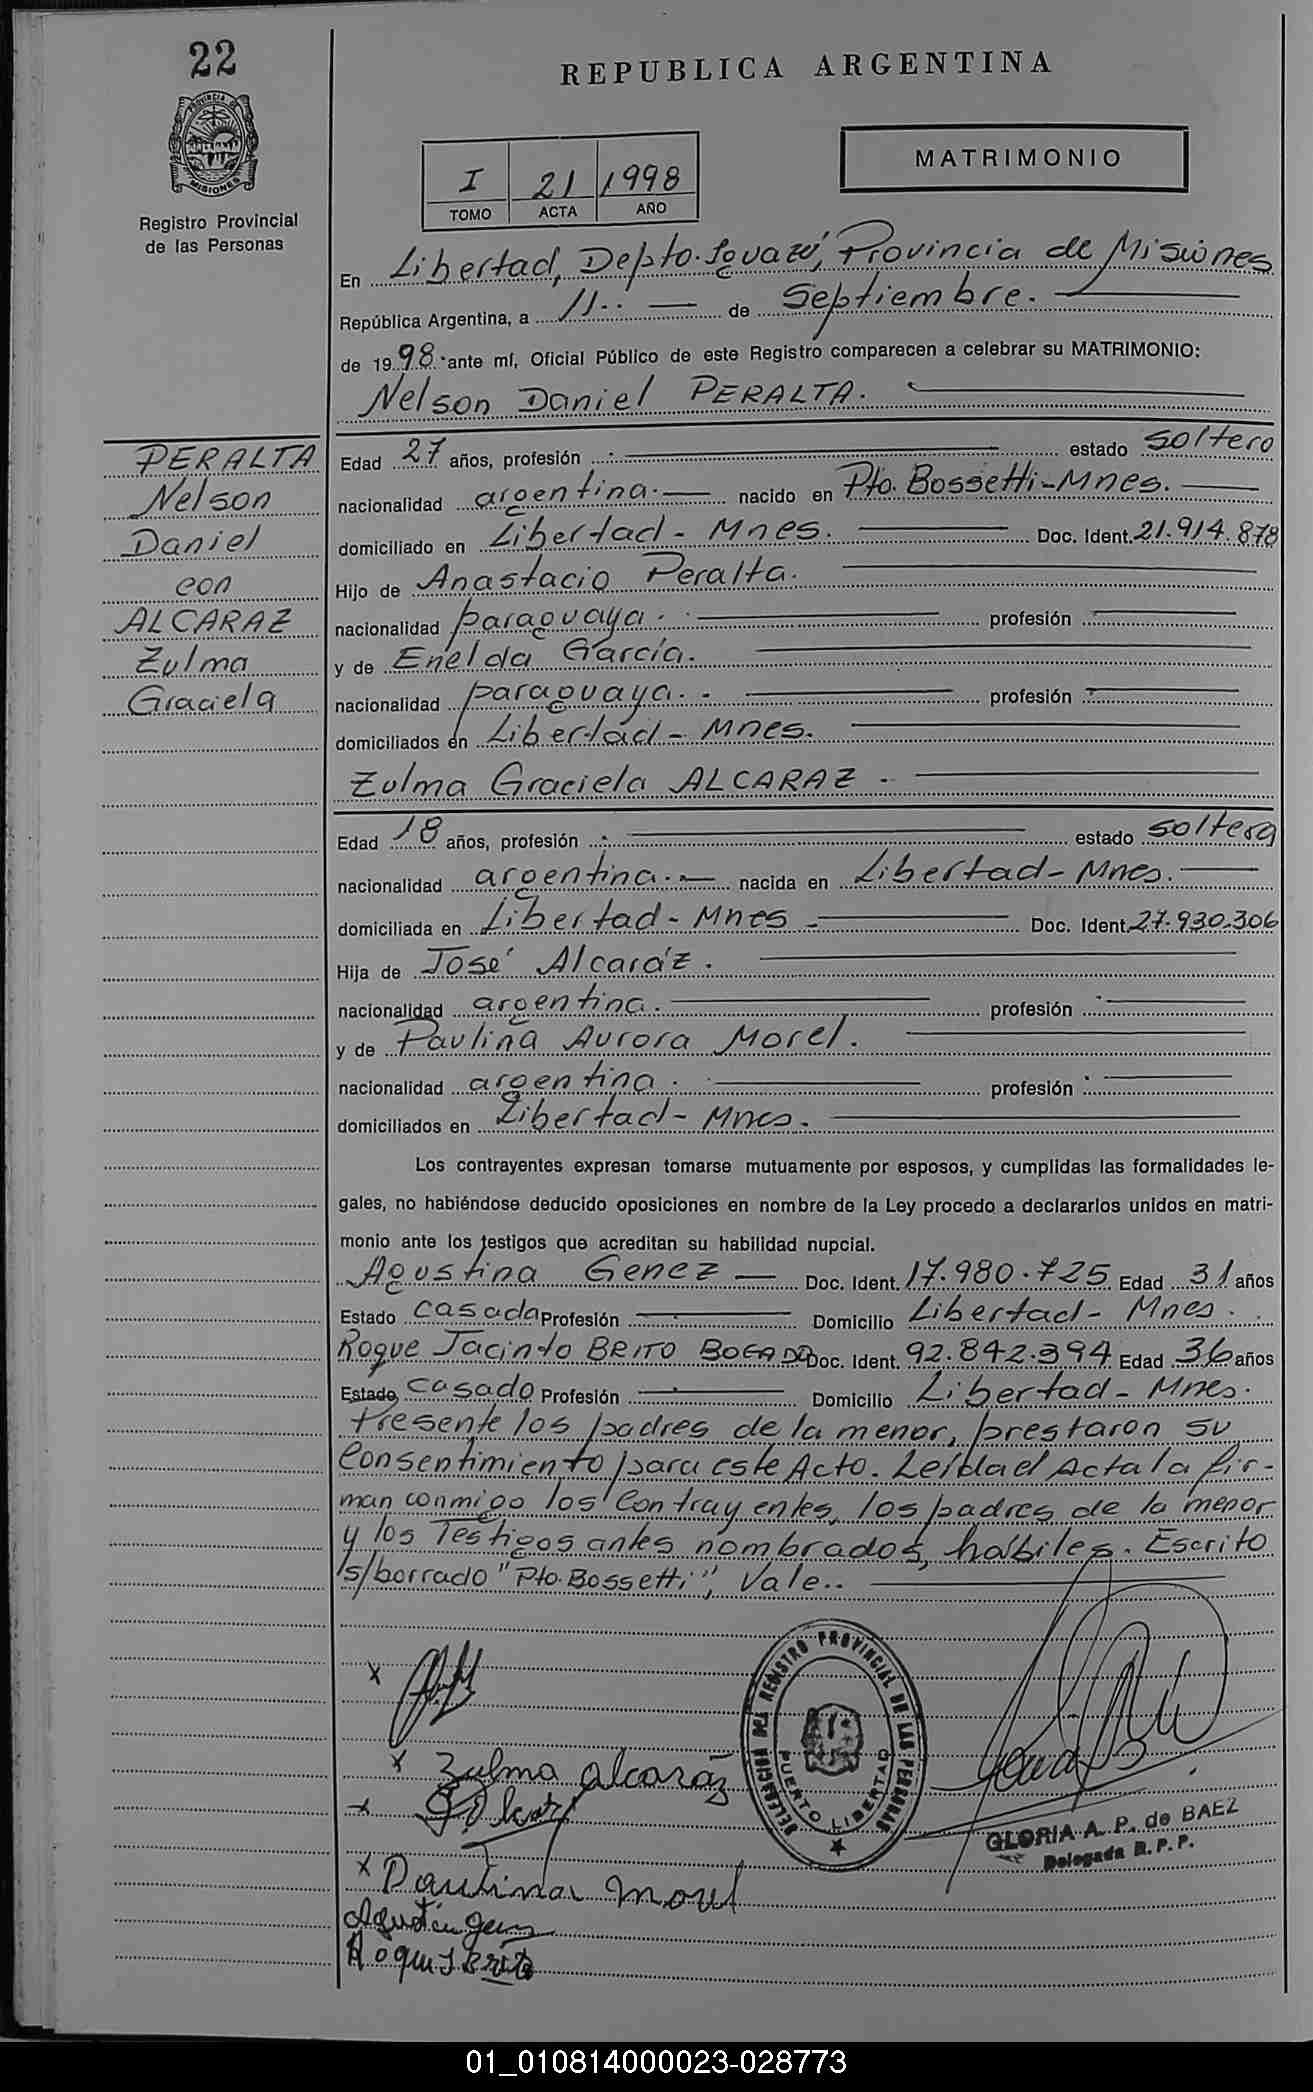 22
REPUBLICA ARGENTINA
PROVINCIA DE
MISIONES
Registro Provincial
de las Personas
MATRIMONIO
I 21 1998
TOMO ACTA AÑO
En Libertad, Depto. Iguazú, Provincia de Misiones
República Argentina, a 11.. — de Septiembre.
de 1998 ante mí, Oficial Público de este Registro comparecen a celebrar su MATRIMONIO:
Nelson Daniel PERALTA.
PERALTA
Nelson
Daniel
con
ALCARAZ
Zulma
Graciela
Edad 27 años, profesión estado soltero
nacionalidad argentina. nacido en Pto. Bossetti-Mnes.
domiciliado en Libertad - Mnes. Doc. Ident. 21.914.878
Hijo de Anastacio Peralta.
nacionalidad paraguaya. profesión
y de Enelda García.
nacionalidad paraguaya. profesión
domiciliados en Libertad - Mnes.
Zulma Graciela ALCARAZ.
Edad 18 años, profesión estado soltera
nacionalidad argentina. nacida en Libertad - Mnes.
domiciliada en Libertad - Mnes Doc. Ident. 27.930.306
Hija de José Alcaráz.
nacionalidad argentina. profesión
y de Paulina Aurora Morel.
nacionalidad argentina. profesión
domiciliados en Libertad - Mnes.
Los contrayentes expresan tomarse mutuamente por esposos, y cumplidas las formalidades le-
gales, no habiéndose deducido oposiciones en nombre de la Ley procedo a declararlos unidos en matri-
monio ante los testigos que acreditan su habilidad nupcial.
Agustina Genez — Doc. Ident. 17.980.725 Edad 31 años
Estado casada Profesión Domicilio Libertad - Mnes.
Roque Jacinto BRITO BOGADO Doc. Ident. 92.842.394 Edad 36 años
Estado casado Profesión Domicilio Libertad - Mnes.
Presente los padres de la menor, prestaron su
Consentimiento para este Acto. Leída el Acta la fir-
man conmigo los Contrayentes, los padres de la menor
y los Testigos antes nombrados, hábiles. Escrito
s/borrado "Pto. Bossetti", Vale..
x
x Zulma Alcaraz
x
x Paulina Morel
Agustina Genez
Roque J Brito
DELEGACION DEL REGISTRO PROVINCIAL DE LAS PERSONAS
PUERTO LIBERTAD
GLORIA A. P. de BAEZ
Delegada R. P. P.
01_010814000023-028773